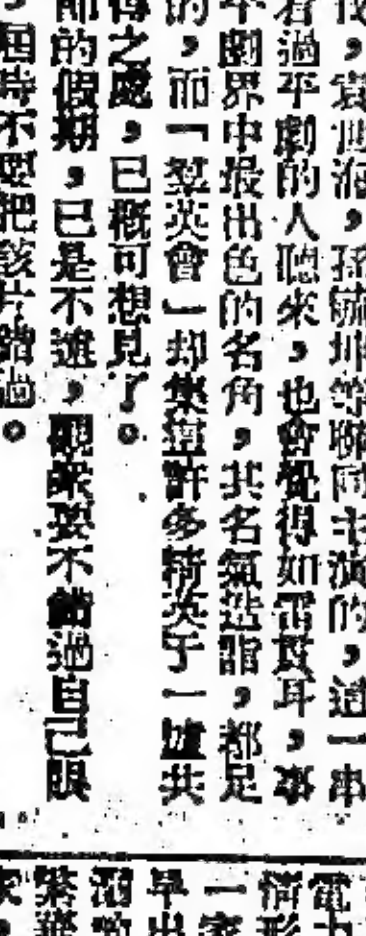 袁世海,孫毓堃等聯同主演的,這一串
看過平劇的人聽來,也會覺得如雷貫耳,事
平劇界中最出色的名角,其名氣造詣,都足
的,而「羣英會」却集這許多精英于一爐共
得之處,已概可想見了。
節的假期,已是不遠,觀衆要不錯過自己眼
,屆時不要把該片錯過。
電力
情形
一家
早出